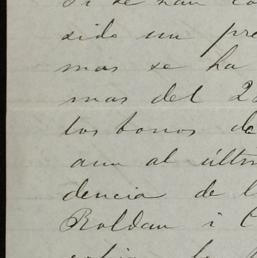 si se han co
sido un pre
mas se ha
mas del 25
los bonos de
aun al últim
dencia de l
Roldan i C